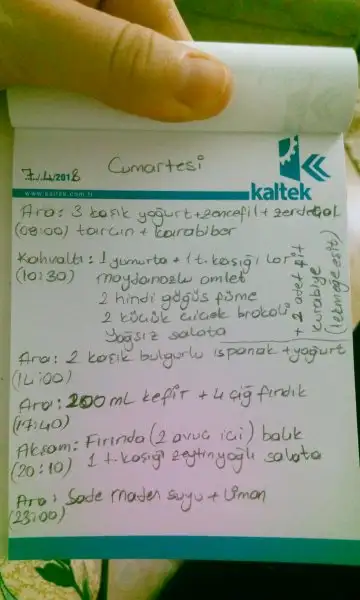 7/4/2018 Cumartesi
www.kaltek.com.tr
kaltek
Ara: 3 kaşık yoğurt+zencefil+zerdeçal
(08:00) tarçın + karabiber
Kahvaltı: 1 yumurta + 1 t. kaşığı lor
(10:30) maydanozlu omlet
2 hindi göğüs füme
2 küçük çiçek brokoli
Yağsız salata
+ 2 adet fit
kurabiye
(1 ekmeğe eşit)
Ara: 2 kaşık bulgurlu ıspanak +yoğurt
(14:00)
Ara: 200 mL kefir + 4 çiğ fındık
(17:40)
Akşam: Fırında (2 avuç içi) balık
(20:10) 1 t. kaşığı zeytinyağlı salata
Ara: Sade maden suyu + limon
(23:00)